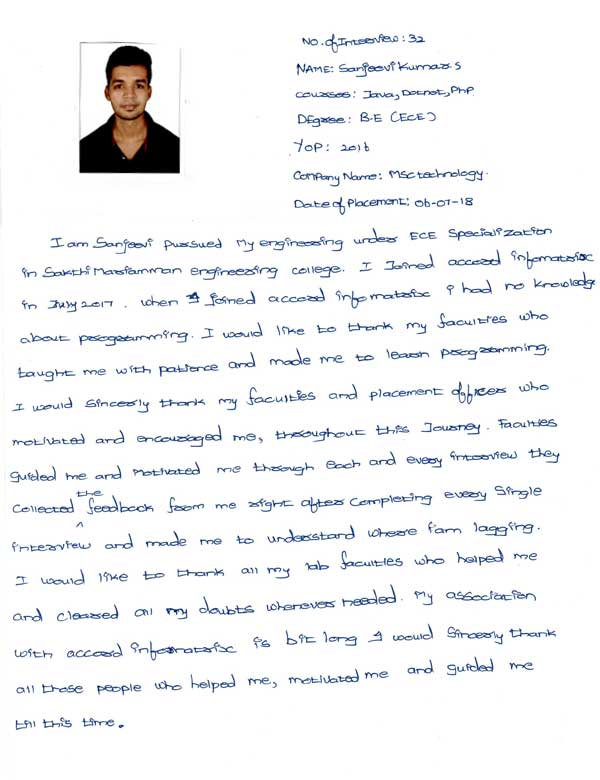 No. of Interview: 32
NAME: Sanjeevi Kumar.S
Courses: Java, Dotnet, PhP
DEgree: B.E (ECE)
YOP: 2016
Company Name: MSC technology.
Date of Placement: 06-07-18
I am Sanjeevi pursued My engineering under ECE Specialization
in Sakthi Mariamman engineering college. I Joined accord infomatrix
in July 2017. when I joined accord infomatrix i had no knowledge
about programming. I would like to thank my faculties who
taught me with patience and made me to learn programming.
I would Sincerly thank my faculties and placement officer who
motivated and encouraged me, throughout this Journey. Faculties
guided me and Motivated me through each and every interview they
Collected the feedback from me right after Completing every Single
interview and made me to understand where i'am lagging.
I would like to thank all my lab faculties who helped me
and cleared all my doubts whenever needed. My association
with accord informatrix is bit long I would Sincerly thank
all those people who helped me, motivated me and guided me
till this time.